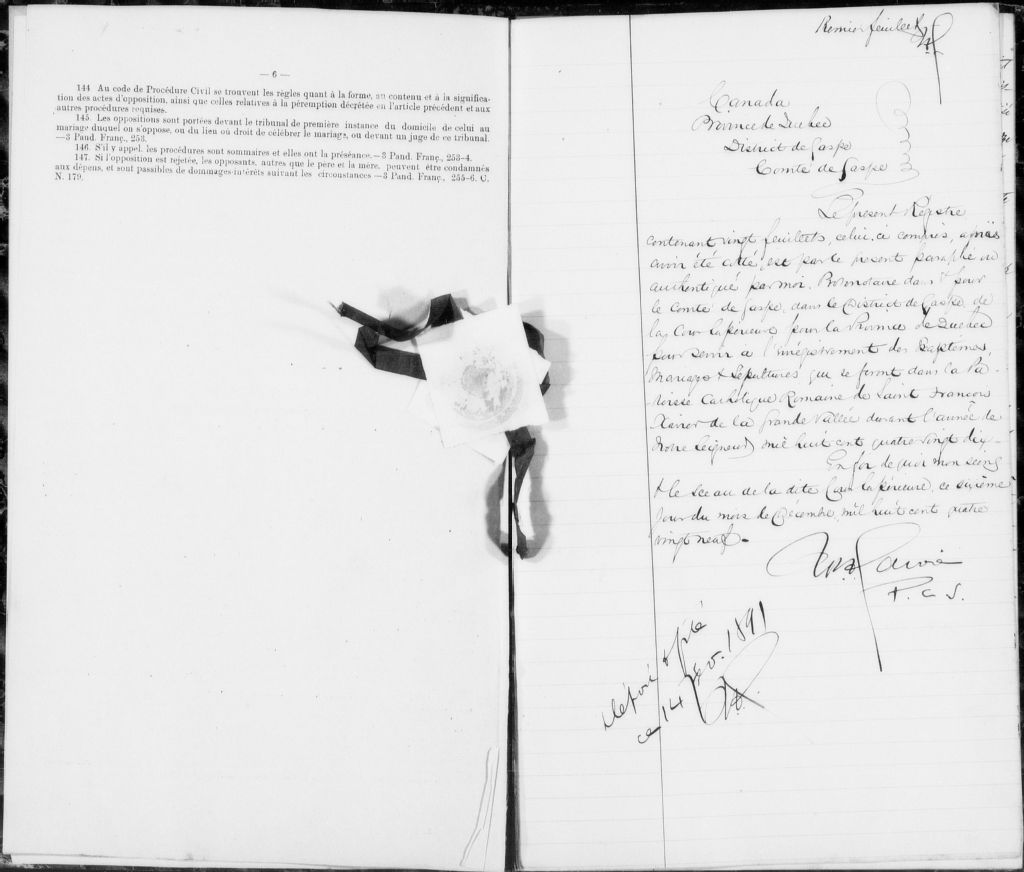 — 6 —
144 Au code de Procédure Civil se trouvent les règles quant à la forme, au contenu et à la significa-
tion des actes d'opposition, ainsi que celles relatives à la péremption décrétée en l'article précédent et aux
autres procédures requises.
145. Les oppositions sont portées devant le tribunal de première instance du domicile de celui au
mariage duquel on s'oppose, ou du lieu où droit de célébrer le mariage, ou devant un juge de ce tribunal.
—3 Pand. Franç., 253.
146. S'il y appel, les procédures sont sommaires et elles ont la préséance.—3 Pand. Franç., 253-4.
147. Si l'opposition est rejetée, les opposants, autres que le père et la mère, peuvent être condamnés
aux dépens, et sont passibles de dommages-intérêts suivant les circonstances.—3 Pand. Franç., 255-6. C.
N. 179.
Premier feuillet
Canada
Province de Quebec
District de Gaspe
Comté de Gaspe
Le present Registre
contenant vingt feuillets, celui-ci compris, après
avoir été cotté est par le present paraphé ou
authentiqué par moi, Protonotaire dans & pour
le Comté de Gaspe, dans le District de Gaspe, de
la Cour Supérieure pour la Province de Quebec
pour servir a l'enrégistrement des Baptemes,
Mariages & Sépultures qui se feront dans la Pa-
roisse Catholique Romaine de Saint Francois
Xavier de la Grande Vallée durant l'année de
Notre Seigneur mil huit cent quatre vingt dix -
En foi de quoi mon seing
& le sceau de la dite Cour Supérieure, ce sixième
jour du mois de Décembre, mil huit cent quatre
vingt neuf.
P. C. S.
Déposé
ce 14 Fev. 1891